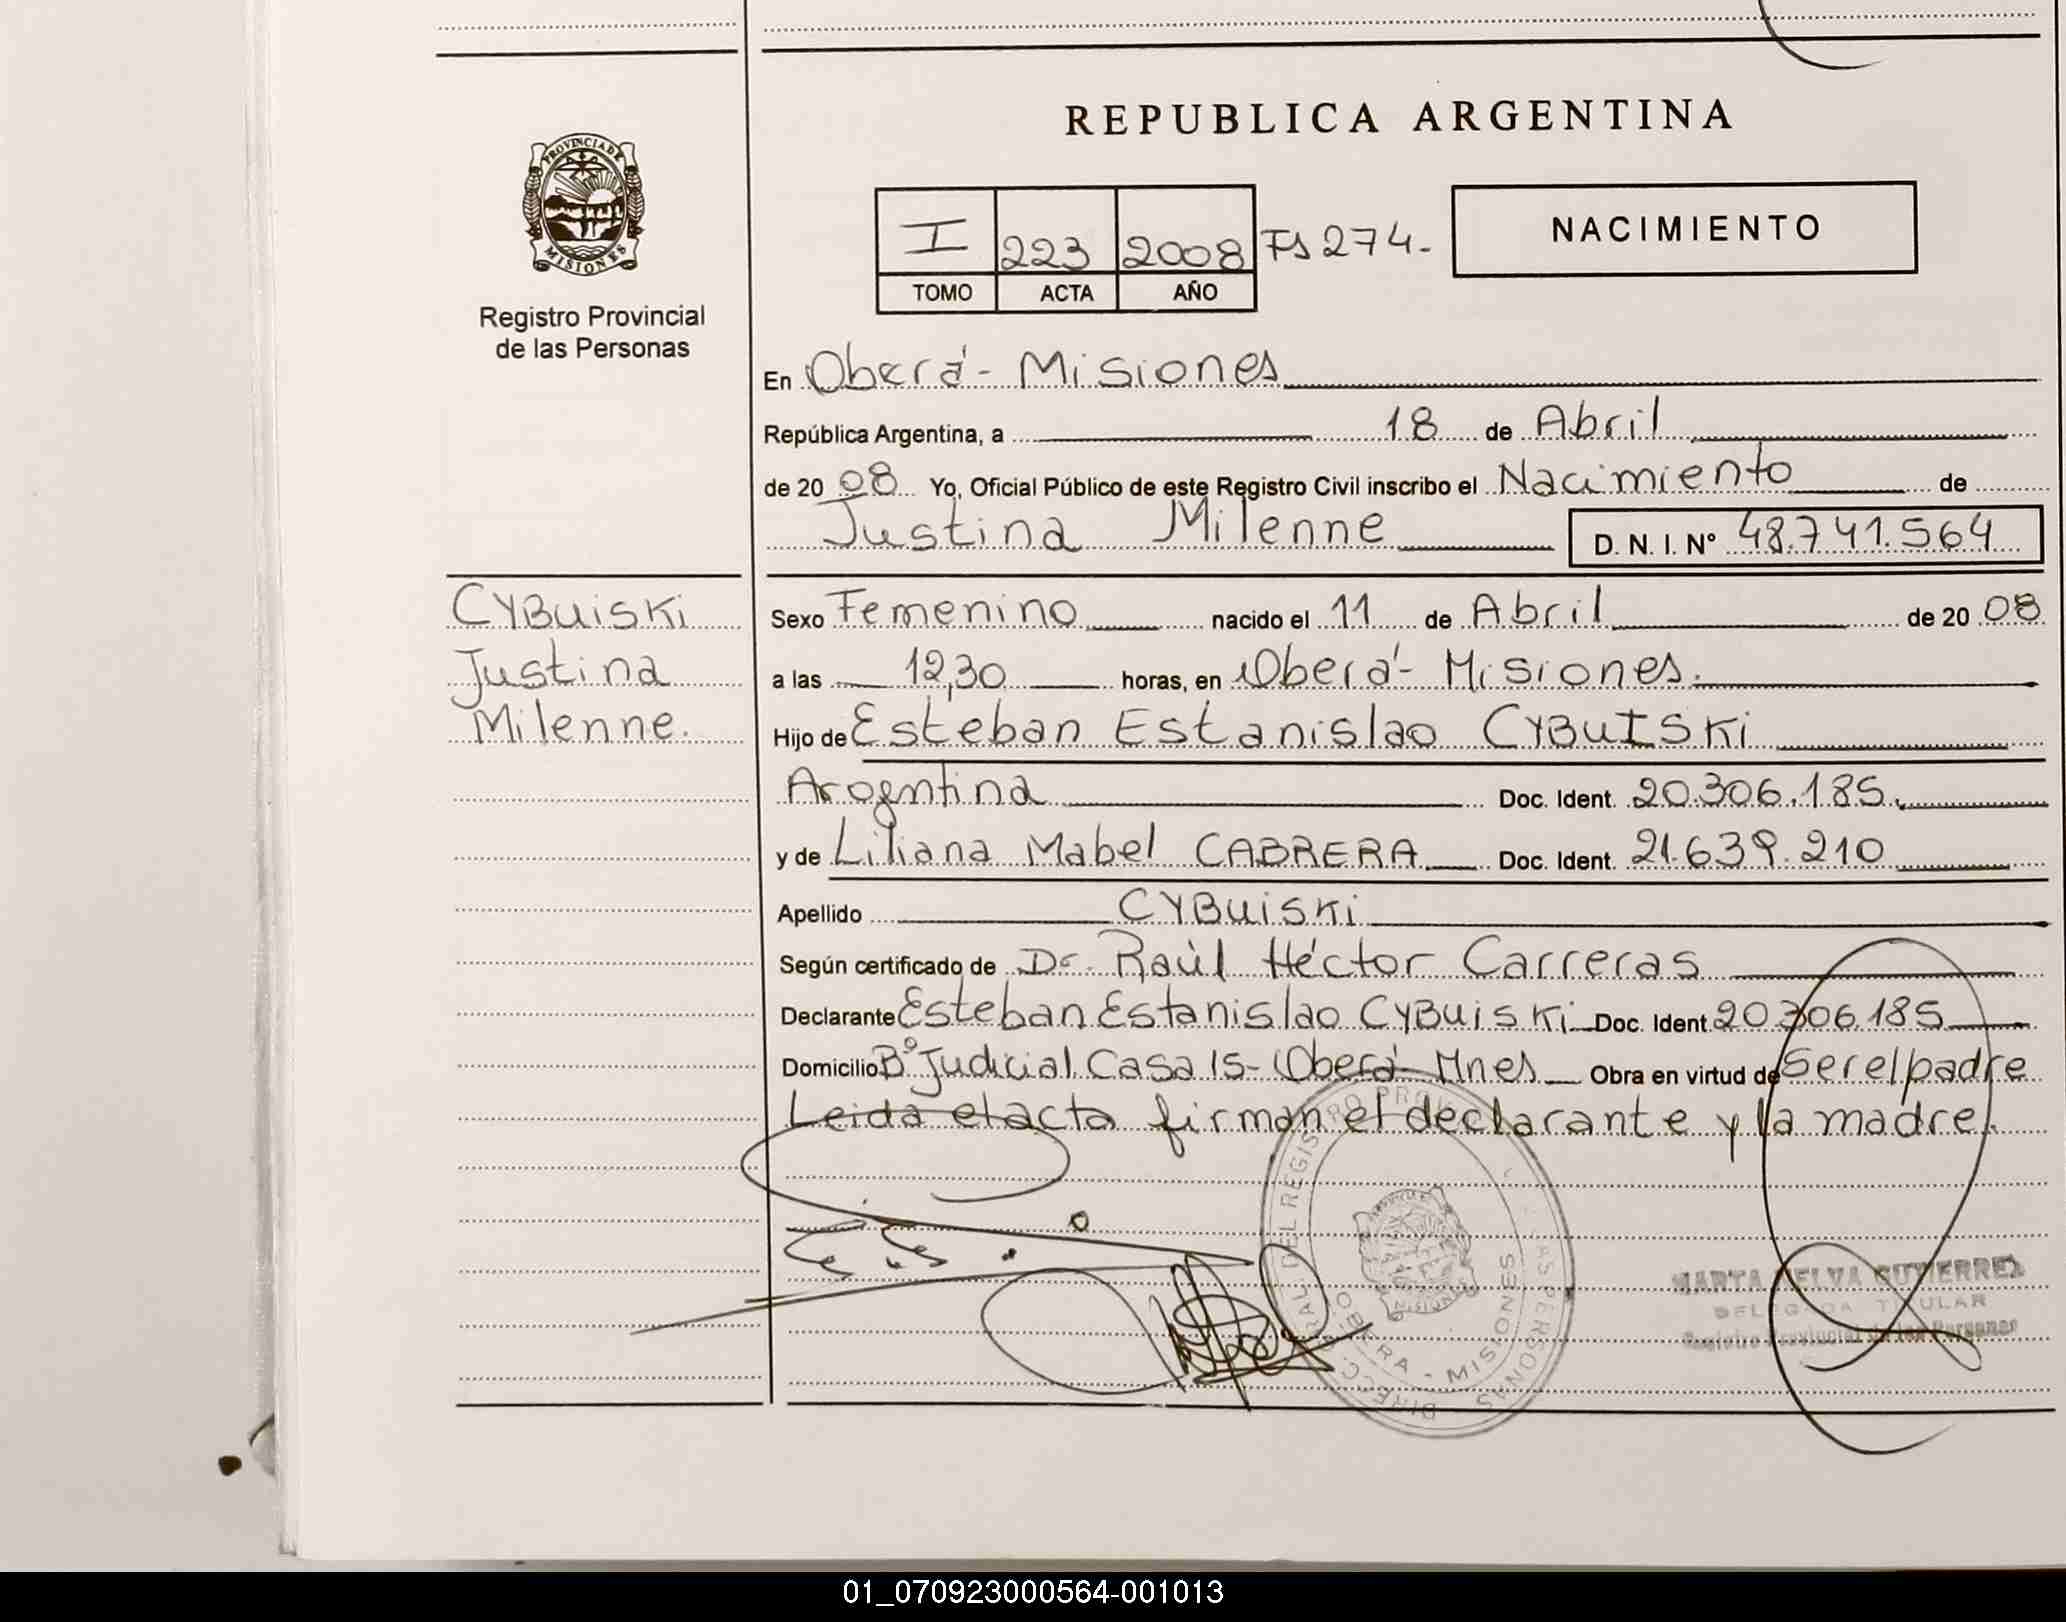 REPUBLICA ARGENTINA
PROVINCIA DE
MISIONES
Registro Provincial
de las Personas
I 223 2008 Fs 274.-
TOMO ACTA AÑO
NACIMIENTO
En Oberá - Misiones
República Argentina, a 18 de Abril
de 20 08 Yo, Oficial Público de este Registro Civil inscribo el Nacimiento de
Justina Milenne D. N. I. Nº 48.741.564
CYBUiSKi
Justina
Milenne.
Sexo Femenino nacido el 11 de Abril de 20 08
a las 12,30 horas, en Oberá - Misiones.
Hijo de Esteban Estanislao CYBUISKi
Argentina Doc. Ident. 20.306.185.
y de Liliana Mabel CABRERA Doc. Ident. 21.639.210
Apellido CYBUiSKi
Según certificado de Dr. Raúl Héctor Carreras
Declarante Esteban Estanislao CYBUiSKi Doc. Ident. 20306.185
Domicilio Bº Judicial Casa 15- Oberá- Mnes Obra en virtud de Ser el padre
Leida el acta firman el declarante y la madre.
MARTA ELVA GUTIERREZ
DELEGADA TITULAR
Registro Provincial de las Personas
OBERA - MISIONES
01_070923000564-001013